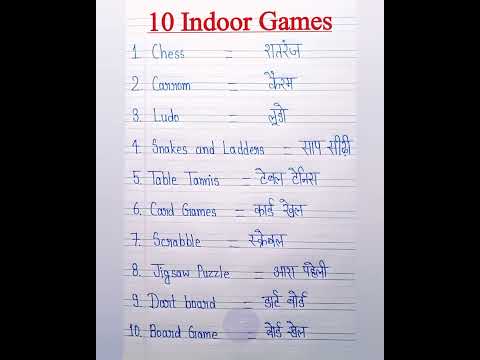 10 Indoor Games
1. Chess = शतरंज
2. Carrom = कैरम
3. Ludo = लूडो
4. Snakes and Ladders = साप सीढ़ी
5. Table Tannis = टेबल टेनिस
6. Card Games = कार्ड खेल
7. Scrabble = स्क्रेबल
8. Jigsaw Puzzle = आरा पहेली
9. Dart board = डार्ट बोर्ड
10. Board Game = बोर्ड खेल